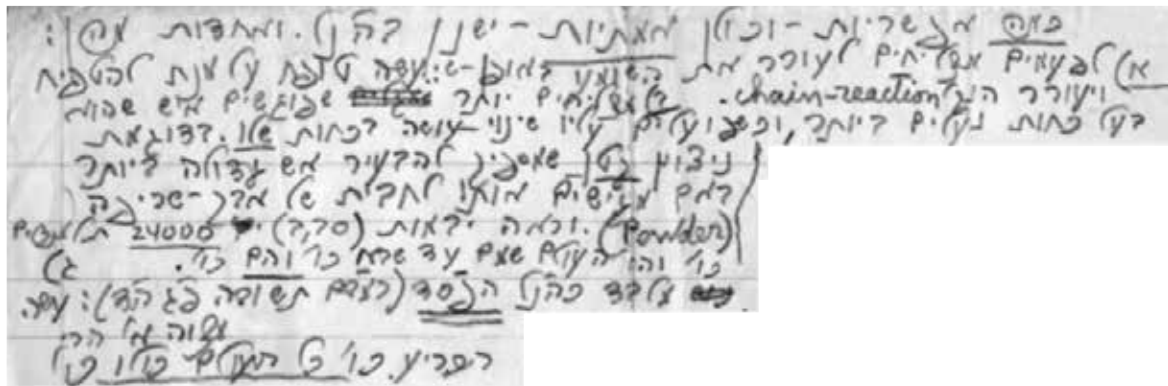 כמה אפשריות - וכולן מעשיות - ישנן בהנ"ל. ומהדות עה"ז:
א) לפעמים מצליחים לעורר את השומע באופן-שיעשה טופח על מנת להטפיח
ויעורר הנ"ל chain-reaction. מצליחים יותר שפוגשים איש שהוא
בעל כחות נעלים ביותר, וכשפועלים עליו שינוי-עושה בכחות שלו. בדוגמת
ניצוץ קטן שמספיק להבעיר אש גדולה ביותר
באם מגישים אותו לחבית של אבק-שריפה
(powder). וראה יבמות (סב,ב) 24000 תלמידים
כו' והי' העולם שמם עד שבא כו' והם כו'. ג)
עלבד כהנ"ל הפסד (רמב"ם תשובה פ"ג ה"ד): עשה
מצוה א' הרי
הכריע כו' כל העולם כולו כו'